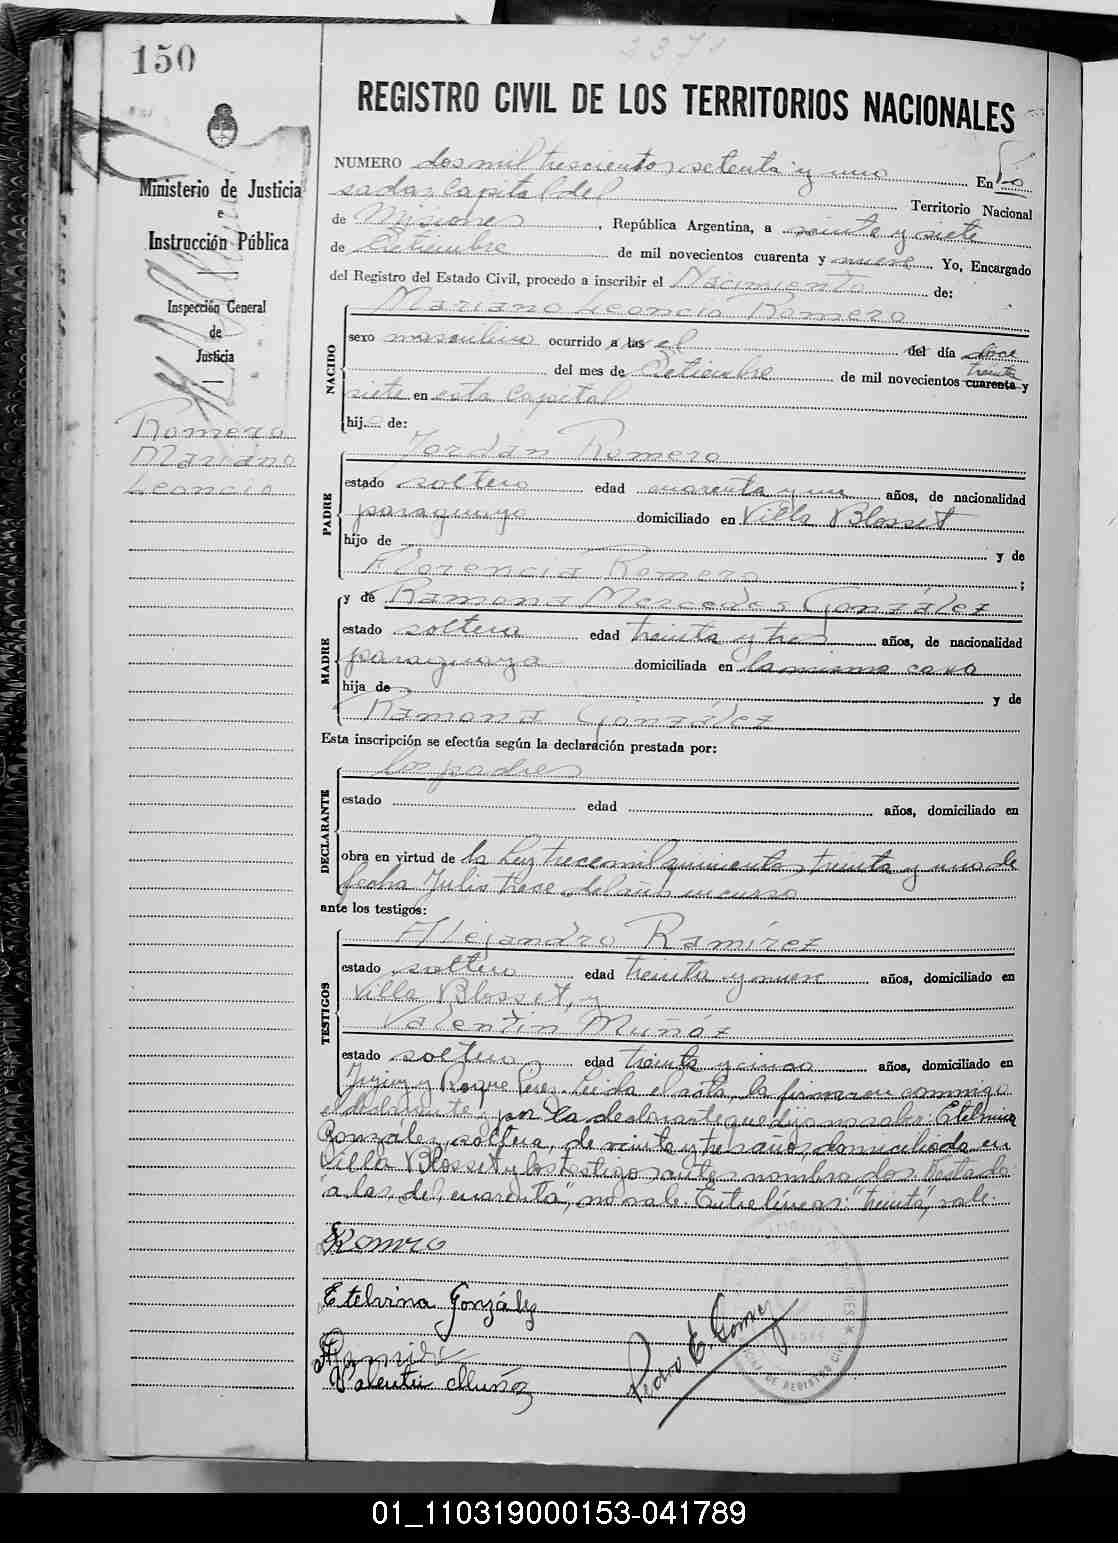 150
2371
REGISTRO CIVIL DE LOS TERRITORIOS NACIONALES
Ministerio de Justicia
e
Instrucción Pública
Inspección General
de
Justicia
Romero
Mariano
Leoncio
NUMERO dos mil trescientos setenta y uno En Po
sadas, Capital del Territorio Nacional
de Misiones, República Argentina, a veinte y siete
de Setiembre de mil novecientos cuarenta y nueve Yo, Encargado
del Registro del Estado Civil, procedo a inscribir el Nacimiento de:
NACIDO
Mariano Leoncio Romero
sexo masculino ocurrido a las el del día doce
treinta
del mes de Setiembre de mil novecientos cuarenta y
siete en esta Capital
hijo de:
PADRE
Jordán Romero
estado soltero edad cuarenta y un años, de nacionalidad
paraguayo domiciliado en Villa Blosset
hijo de y de
Florencia Romero ;
MADRE
y de Ramona Mercedes González
estado soltera edad treinta y tres años, de nacionalidad
paraguaya domiciliada en la misma casa
hija de y de
Ramona González
Esta inscripción se efectúa según la declaración prestada por:
DECLARANTE
los padres
estado edad años, domiciliado en
obra en virtud de la Ley trece mil quinientos treinta y uno de
fecha Julio trece del año en curso
ante los testigos:
TESTIGOS
Alejandro Ramírez
estado soltero edad treinta y nueve años, domiciliado en
Villa Blosset, y
Valentín Muñóz
estado soltero edad treinta y cinco años, domiciliado en
Jujuy y Roque Perez. Leida el acta, la firmaron conmigo
el declarante, por la declarante que dijo no saber Etelvina
González, soltera, de veinte y tres años, domiciliada en
Villa Blosset y los testigos antes nombrados. Testado:
"a las, del, cuarenta", no vale. Entre líneas: "treinta", vale.
Romero
Etelvina González
Ramirez
Valentin Muñoz
Pedro E. Gomez
DE REGISTRO CIVIL
01_110319000153-041789